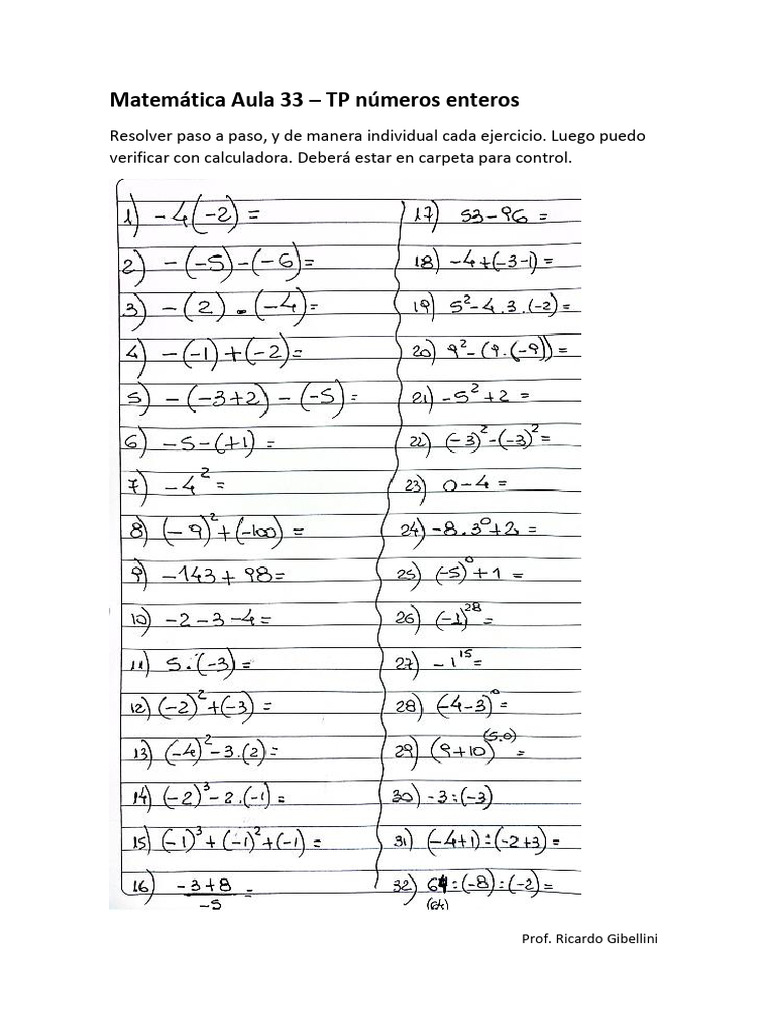 Matemática Aula 33 – TP números enteros
Resolver paso a paso, y de manera individual cada ejercicio. Luego puedo
verificar con calculadora. Deberá estar en carpeta para control.
1) -4(-2) =
2) -(-5)-(-6)=
3) -(2) . (-4)=
4) -(-1)+(-2)=
5) -(-3+2) - (-5)=
6) -5-(+1) =
7) -4² =
8) (-9)²+(-100) =
9) -143 + 98=
10) -2-3-4=
11) 5.(-3) =
12) (-2)²+(-3) =
13) (-4)²-3.(2)=
14) (-2)³-2.(-1)=
15) (-1)³+(-1)²+(-1) =
16) -3+8 =
-5
17) 53-96 =
18) -4+(-3-1)=
19) 5²-4.3.(-2)=
20) 9²-(9.(-9))=
21) -5²+2 =
22) (-3)²-(-3)²=
23) 0-4 =
24) -8.3⁰+2 =
25) (-5)⁰+1 =
26) (-1)²⁸ =
27) -1¹⁵=
28) (-4-3)⁰=
29) (9+10)⁽⁵·⁰⁾ =
30) -3:(-3)
31) (-4+1):(-2+3)=
32) 64:(-8):(-2)=
(64)
Prof. Ricardo Gibellini